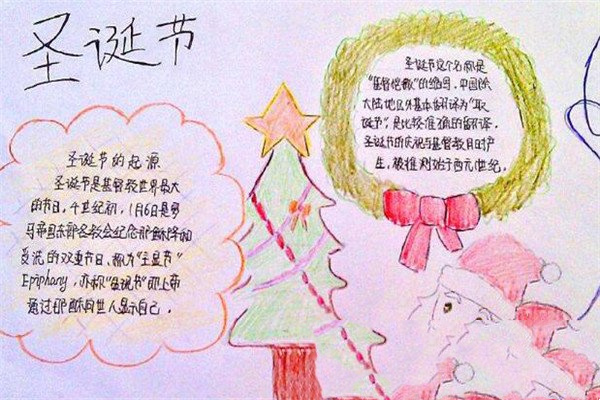 圣诞节
圣诞节的起源
圣诞节是基督教世界最大
的节日，4世纪初，1月6日是罗
马帝国东部各教会纪念耶稣降和
受洗的双重节日、称为"主显节"
Epiphany，亦称"显现节"即上帝
通过耶稣向世人显示自己。
圣诞节这个名称是
"基督弥撒"的缩写，中国除
大陆地区外基本翻译为"耶
诞节"，是比较准确的翻译。
圣诞节的庆祝与基督教同时产
生，被推测始于西元1世纪。